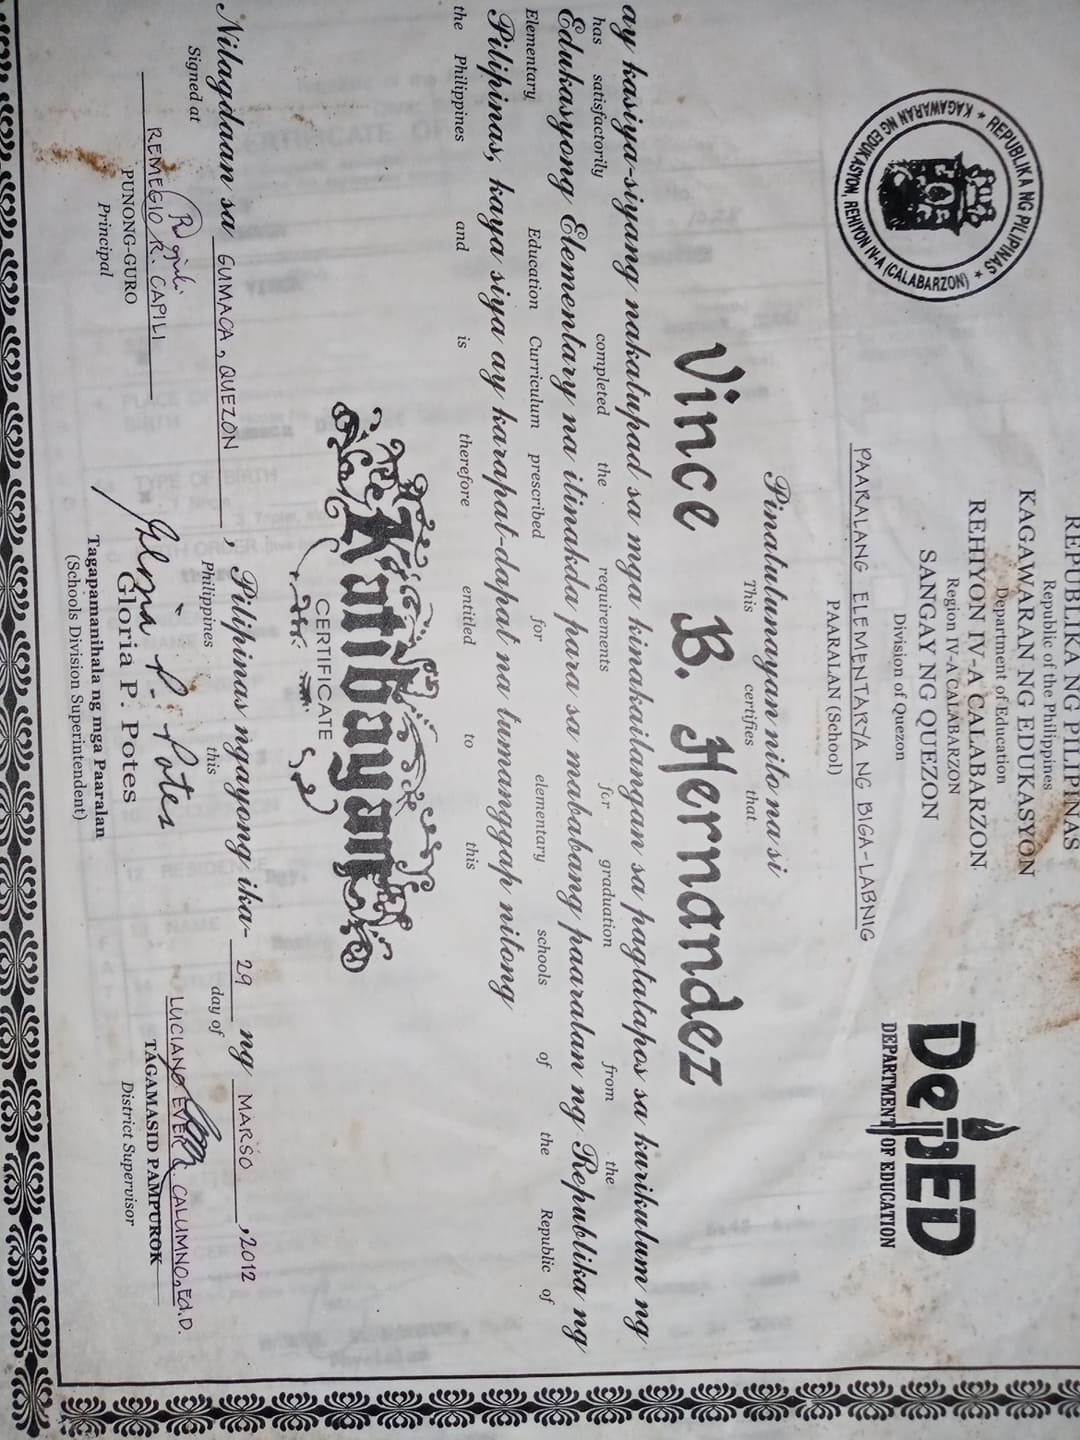 REPUBLIKA NG PILIPINAS
Republic of the Philippines
KAGAWARAN NG EDUKASYON
Department of Education
REHIYON IV-A CALABARZON
Region IV-A CALABARZON
SANGAY NG QUEZON
Division of Quezon
PAARALANG ELEMENTARYA NG BIGA-LABNIG
PAARALAN (School)
★ REPUBLIKA NG PILIPINAS ★ KAGAWARAN NG EDUKASYON, REHIYON IV-A (CALABARZON)
DepED
DEPARTMENT OF EDUCATION
Pinatutunayan nito na si
This certifies that
Vince B. Hernandez
ay kasiya-siyang nakatupad sa mga kinakailangan sa pagtatapos sa kurikulum ng
has satisfactorily completed the requirements for graduation from the
Edukasyong Elementary na itinakda para sa mababang paaralan ng Republika ng
Elementary Education Curriculum prescribed for elementary schools of the Republic of
Pilipinas, kaya siya ay karapat-dapat na tumanggap nitong
the Philippines and is therefore entitled to this
Katibayan
CERTIFICATE
Nilagdaan sa GUMACA, QUEZON, Pilipinas ngayong ika- 29 ng MARSO, 2012
Signed at Philippines this day of
REMEGIO R. CAPILI
PUNONG-GURO
Principal
LUCIANO EVER C. CALUMNO, Ed.D.
TAGAMASID PAMPUROK
District Supervisor
Gloria P. Potes
Gloria P. Potes
Tagapamanihala ng mga Paaralan
(Schools Division Superintendent)